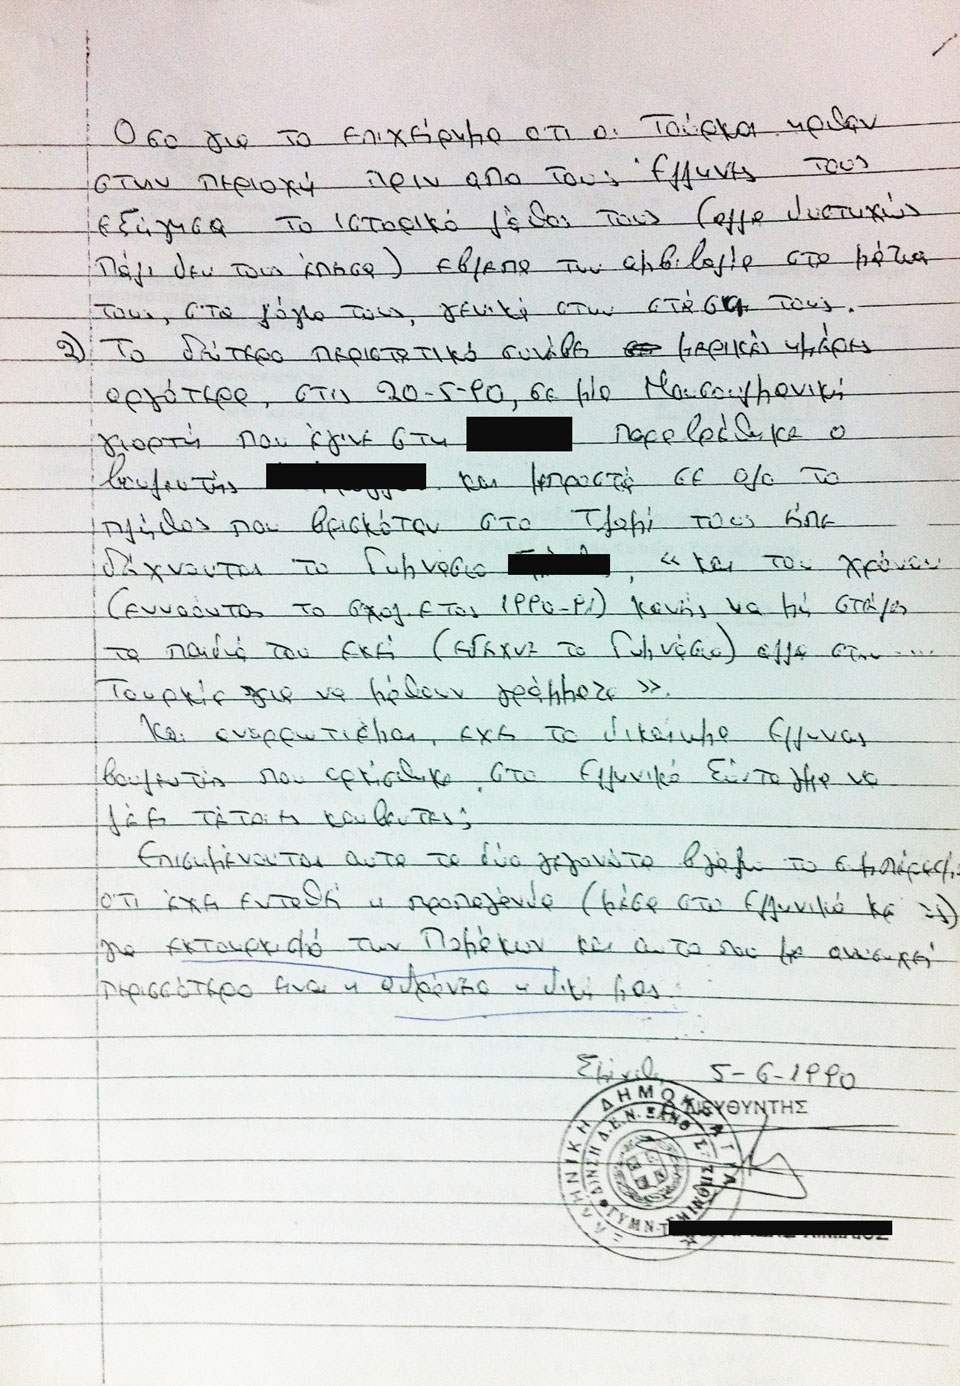 Οσο για το επιχείρημα οτι οι Τούρκοι ηρθαν
στην περιοχή πριν απο τους Έλληνες τους
εξήγησα το ιστορικό λάθος τους (αλλα δυστυχώς
πάλι δεν τους έπεισα) εβλεπα την αμφιβολία στα μάτια
τους, στα λόγια τους, γενικά στην στάση τους.
2) Το δεύτερο περιστατικό συνέβει μερικές ημέρες
αργότερα, στις 20-5-90, σε μία Μουσουλμανική
γιορτή που έγινε στη παραβρέθηκε ο
βουλευτής και μπροστά σε ολο το
πλήθος που βρισκόταν στο Τζαμί τους είπε
δείχνοντας το Γυμνάσιο , «και του χρόνου
(εννοώντας το σχολ. ετος 1990-91) κανείς να μή στείλει
τα παιδιά του εκεί (εδειχνε το Γυμνάσιο) αλλα στην ....
Τουρκία για να μάθουν γράμματα».
Και αναρρωτιέμαι, εχει το δικαίωμα Ελληνας
βουλευτής που ορκίσθηκε στο Ελληνικό Σύνταγμα να
λέει τέτοιες κουβεντες;
Επισημαίνοντας αυτα τα δύο γεγονότα βγάζω το συμπέρασμα
οτι έχει ενταθεί η προπαγάνδα (μέσα στο Ελληνικό)
για εκτουρκισμό των Πομάκων και αυτο που με ανησυχεί
περισσότερο ειναι η αδράνεια η δική μας.
5-6-1990
Ο ΔΙΕΥΘΥΝΤΗΣ
ΕΛΛΗΝΙΚΗ ΔΗΜΟΚΡΑΤΙΑ
Δ/ΝΣΗ Δ.Ε. Ν. ΞΑΝΘΗΣ
ΓΥΜΝ.